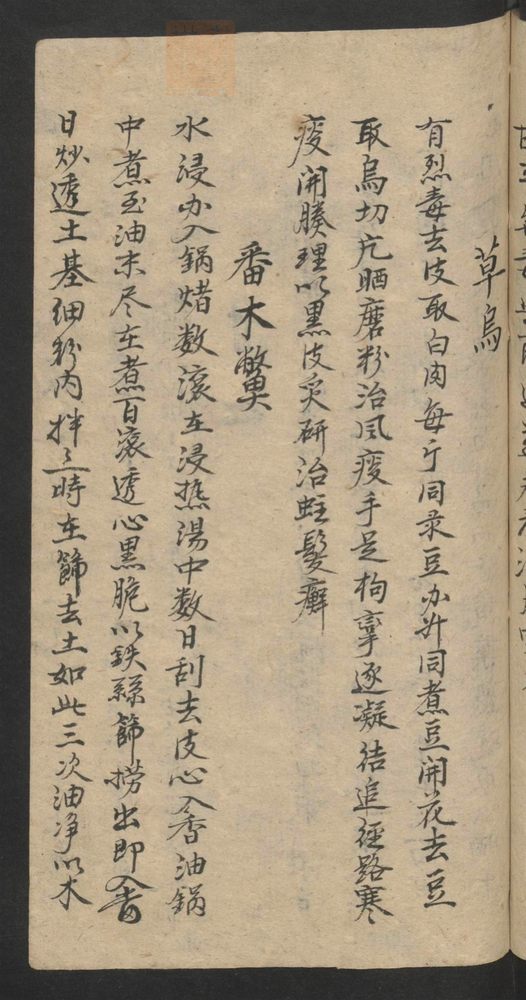 草烏
有烈毒去皮取白肉每斤同录豆办升同煮豆開花去豆
取烏切片晒磨粉治風痰手足拘攣逐凝结追經路寒
痰開腠理以黑皮炙研治蛀髮癬
番木鱉
水浸办入鍋煮数滚在浸热湯中数日刮去皮心入香油鍋
中煮至油末尽在煮百滚透心黑脆以鉄絲篩捞出即入當
日炒透土基细粉内拌二時在篩去土如此三次油净以木